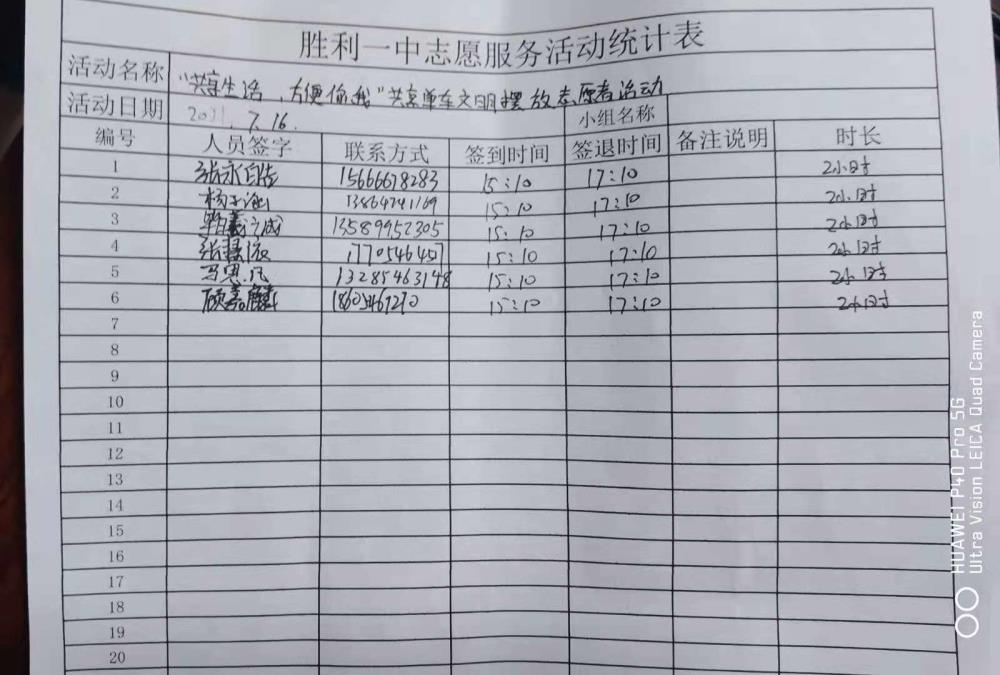 胜利一中志愿服务活动统计表
活动名称 "共享生活,方便你我"共享单车文明摆放志愿者活动
活动日期 2021.7.16. 小组名称
编号 人员签字 联系方式 签到时间 签退时间 备注说明 时长
1 15666678283 15:10 17:10 2小时
2 13864741169 15:10 17:10 2小时
3 13589952305 15:10 17:10 2小时
4 15:10 17:10 2小时
5 冯思凡 13285463148 15:10 17:10 2小时
6 顾嘉麟 15:10 17:10 2小时
7
8
9
10
11
12
13
14
15
16
17
18
19
20
HUAWEI P40 Pro 5G
Ultra Vision LEICA Quad Camera